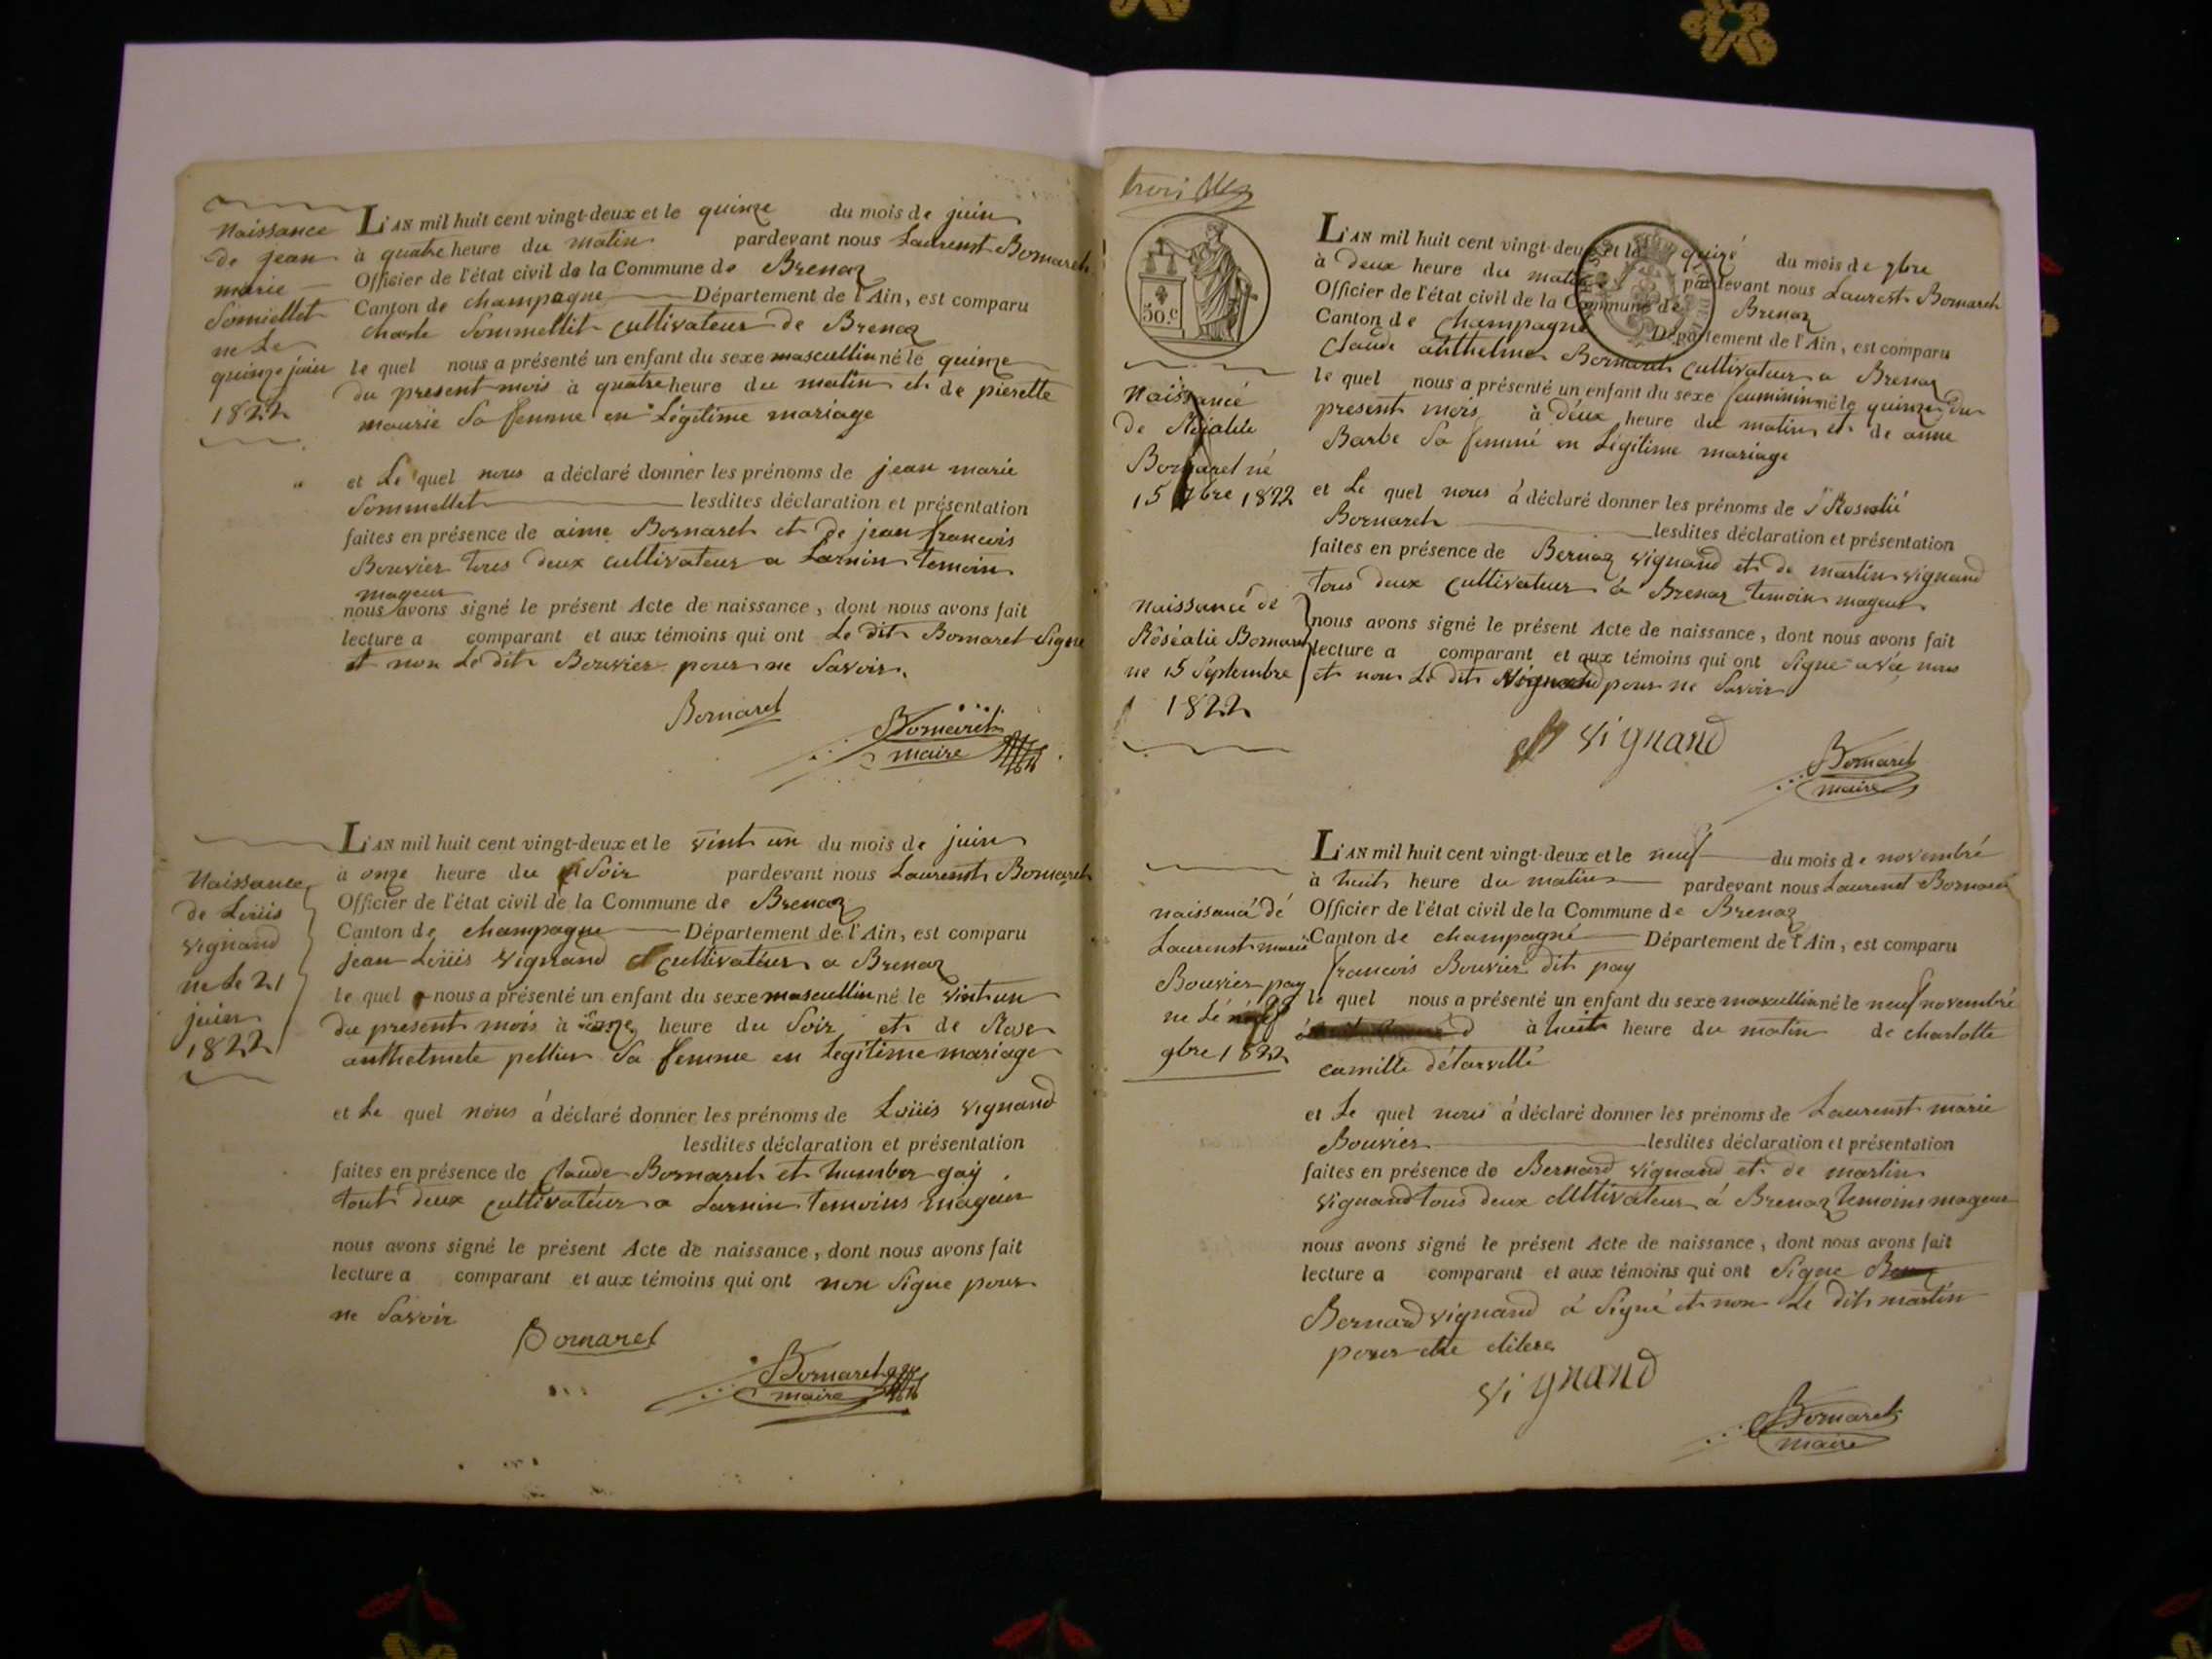 Naissance
de jean
marie
Somiellet
ne Le
quinze juin
1822
L'AN mil huit cent vingt-deux et le quinze du mois de juin
à quatre heure du matin pardevant nous Laurenst Bornaret
Officier de l'état civil de la Commune de Brenaz
Canton de champagne Département de l'Ain, est comparu
charle Sommellet cultivateur de Brenaz
le quel nous a présenté un enfant du sexe mascullin né le quinze
du present mois à quatre heure du matin et de pierette
maurie Sa femme en Légitime mariage
et Le quel nous a déclaré donner les prénoms de jean marie
Sommellet lesdites déclaration et présentation
faites en présence de aime Bornaret et de jean francois
Bouvier tous deux cultivateur a Larnin temoin
mageur
nous avons signé le présent Acte de naissance, dont nous avons fait
lecture a comparant et aux témoins qui ont Le dit Bornaret Signe
et non Le dit Bouvier pour ne Savoir.
Bornaret
Bornaret
maire
Naissance
de Loüis
vignand
ne Le 21
juin
1822
L'AN mil huit cent vingt-deux et le vint un du mois de juin
à onze heure du Soir pardevant nous Laurenst Bornaret
Officier de l'état civil de la Commune de Brenaz
Canton de champagne Département de l'Ain, est comparu
jean Loüis vignand cultivateur a Brenaz
le quel nous a présenté un enfant du sexe mascullin né le vint un
du present mois à onze heure du Soir et de Rose
anthelmete pellier Sa femme en Legitime mariage
et Le quel nous a déclaré donner les prénoms de Loüis vignand
lesdites déclaration et présentation
faites en présence de Claude Bornaret et humber gay
tout deux cultivateur a Larnin temoins mageur
nous avons signé le présent Acte de naissance, dont nous avons fait
lecture a comparant et aux témoins qui ont non Signe pour
ne Savoir
Bornaret
Bornaret
maire
trois
50.c
Naissance
de
Bornaret né
15 7bre 1822
Naissance de
Roséalie Bornaret
ne 15 Septembre
1822
L'AN mil huit cent vingt-deux et le quize du mois de 7bre
à deux heure du matin pardevant nous Laurest Bornaret
Officier de l'état civil de la Commune de Brenaz
Canton de Champagne Département de l'Ain, est comparu
Claude anthelme Bornaret cultivateur a Brenaz
le quel nous a présenté un enfant du sexe feuminin né le quinze du
present mois à deux heure du matin et de anne
Barbe Sa femme en Légitime mariage
et Le quel nous a déclaré donner les prénoms de Rosealié
Bornaret lesdites déclaration et présentation
faites en présence de Bernaz vignand et de martin vignand
tous deux cultivateur à Brenaz temoin mageur
nous avons signé le présent Acte de naissance, dont nous avons fait
lecture a comparant et aux témoins qui ont Signe avée nous
et non Le dit vignand pour ne Savoir
vignand
Bornaret
maire
naissance dé
Laurenst marie
Bouvier pay
ne Lé neuf
9bre 1822
L'AN mil huit cent vingt-deux et le neuf du mois de novembré
à huit heure du matin pardevant nous Laurenst Bornaret
Officier de l'état civil de la Commune de Brenaz
Canton de champagné Département de l'Ain, est comparu
francois Bouvier dit pay
le quel nous a présenté un enfant du sexe mascullin né le neuf novembré
à huit heure du matin de charlotte
camille détarvillé
et Le quel nous a déclaré donner les prénoms de Laurenst marie
Bouvier lesdites déclaration et présentation
faites en présence de Bernard vignand et de martin
vignand tous deux cultivateur á Brenaz temoins mageur
nous avons signé le présent Acte de naissance, dont nous avons fait
lecture a comparant et aux témoins qui ont Signe
Bernard vignand á Signé et non Le dit martin
pour
vignand
Bornaret
maire